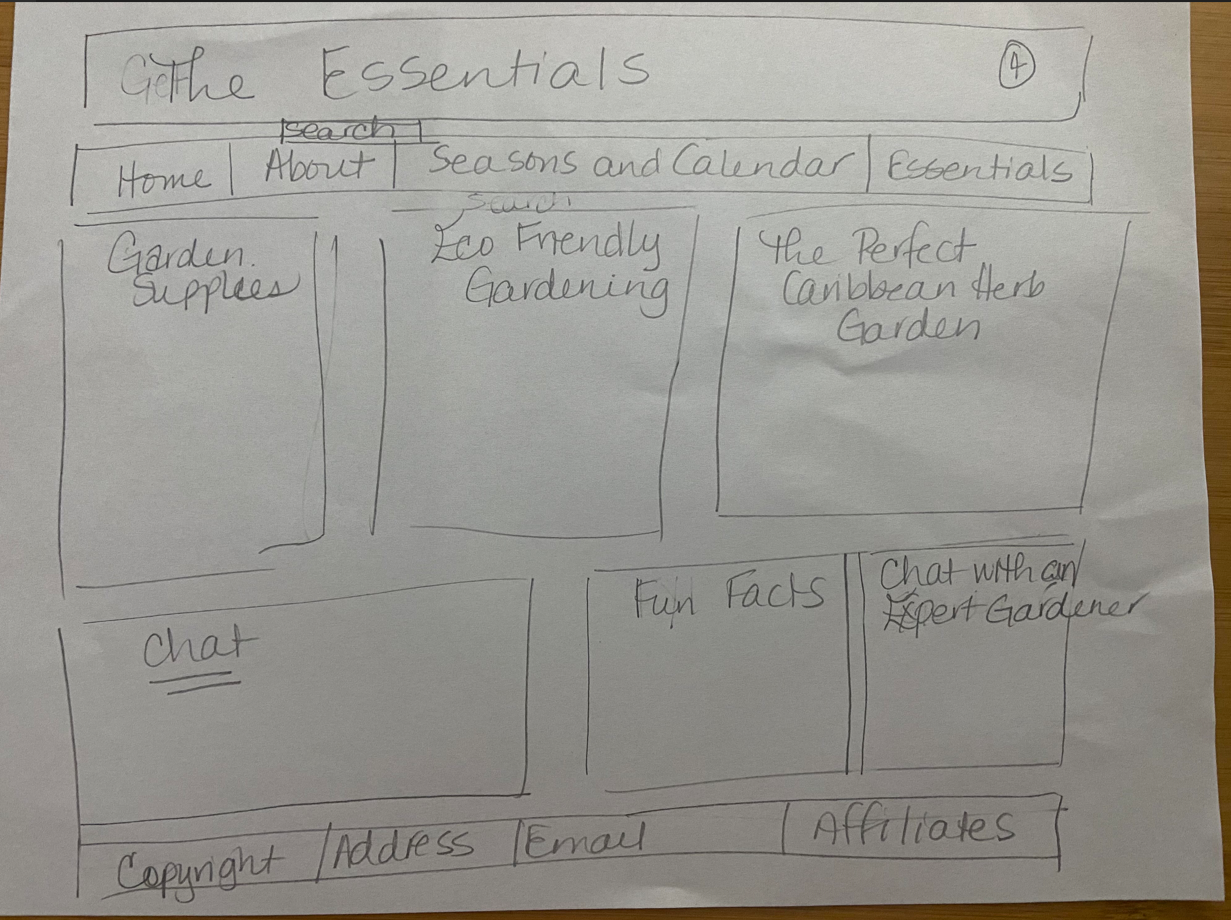 The Essentials 4
search
Home About Seasons and Calendar Essentials
Search
Garden.
Supplies
Eco Friendly
Gardening
The Perfect
Caribbean Herb
Garden
Chat
Fun Facts
Chat with an
Expert Gardener
Copyright Address Email Affiliates